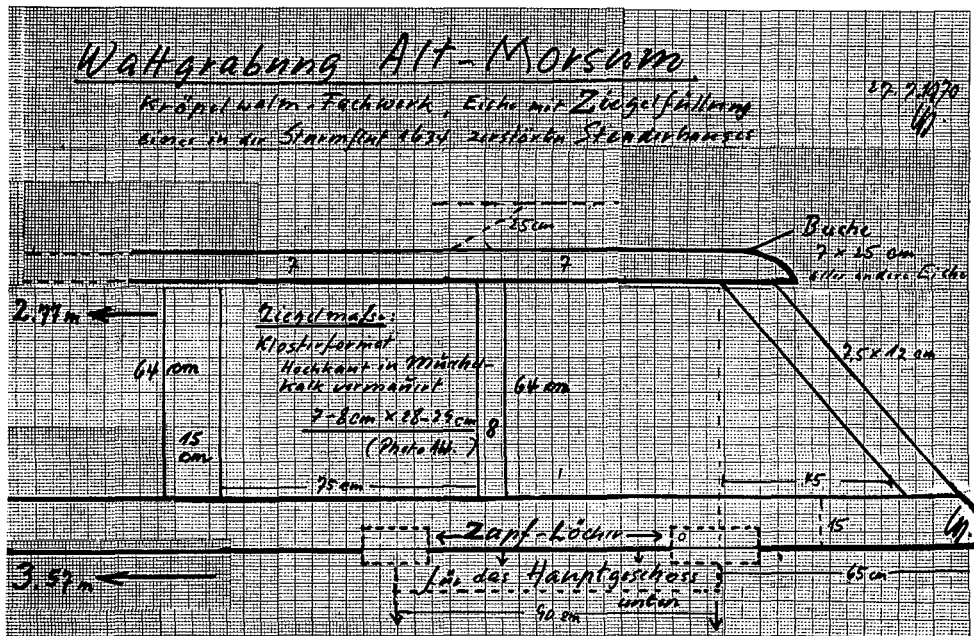 Wattgrabung Alt-Morsum
27.7.1970
Kröpelwalm-Fachwerk, Eiche mit Ziegelfüllung
eines in der Sturmflut 1634 zerstörten Ständerhauses
25cm
Buche
7 x 25 cm
alles andere Eiche
7
7
2.77m
Ziegelmaße:
Klosterformat
Hochkant in Muschel-
kalk vermauert
7-8cm x 28-29cm
(Photo Abb. )
64 cm
64 cm
25 x 12 cm
15
cm
8
75cm
45
15
Zapf-Löcher
für das Hauptgeschoss
unten
3.57m
65cm
90 cm